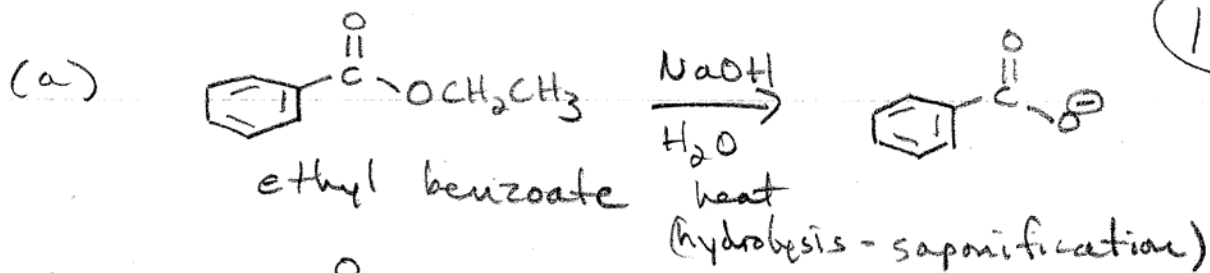 (a) O C OCH2CH3 NaOH H2O O C O⊖ 1
ethyl benzoate heat
(hydrolysis - saponification)
O